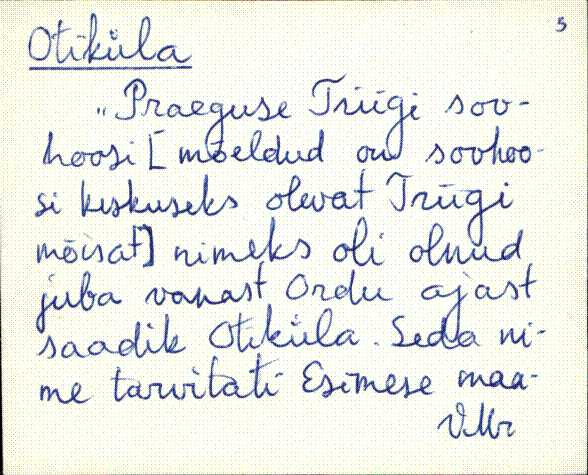 5
Otiküla
„Praeguse Triigi sov-
hoosi [mõeldud on sovhoo-
si keskuseks olevat Triigi
mõisat] nimeks oli olnud
juba vanast Ordu ajast
saadik Otiküla. Seda ni-
me tarvitati Esimese maa-